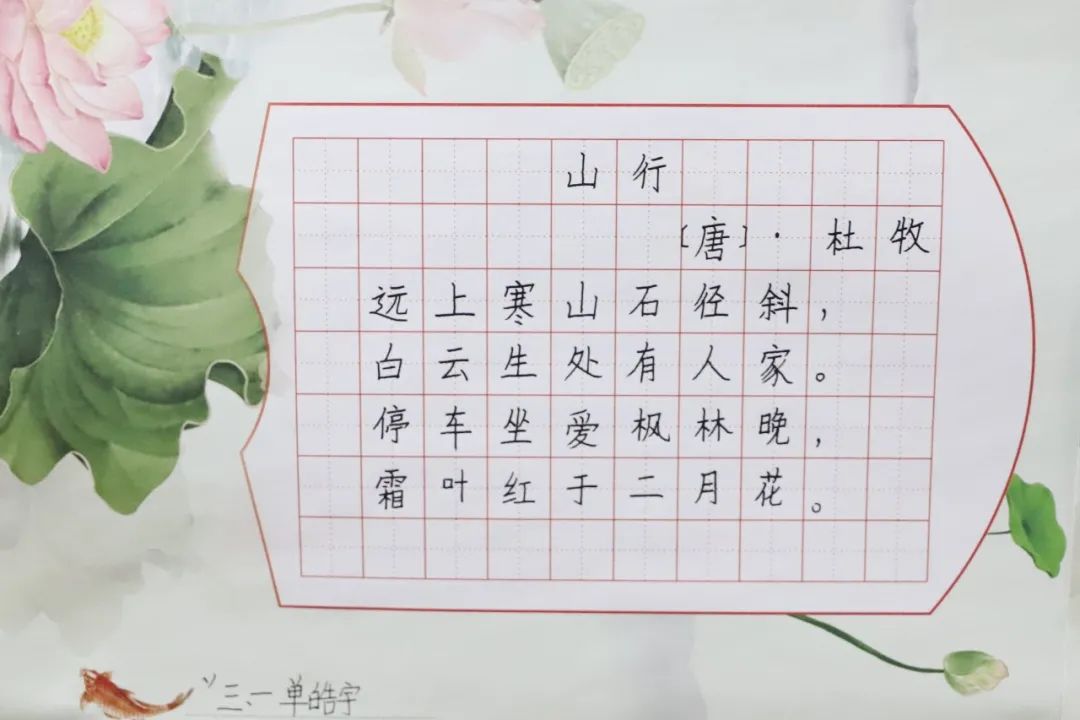 山行
[唐]·杜牧
远上寒山石径斜，
白云生处有人家。
停车坐爱枫林晚，
霜叶红于二月花。
三、一 单皓宇